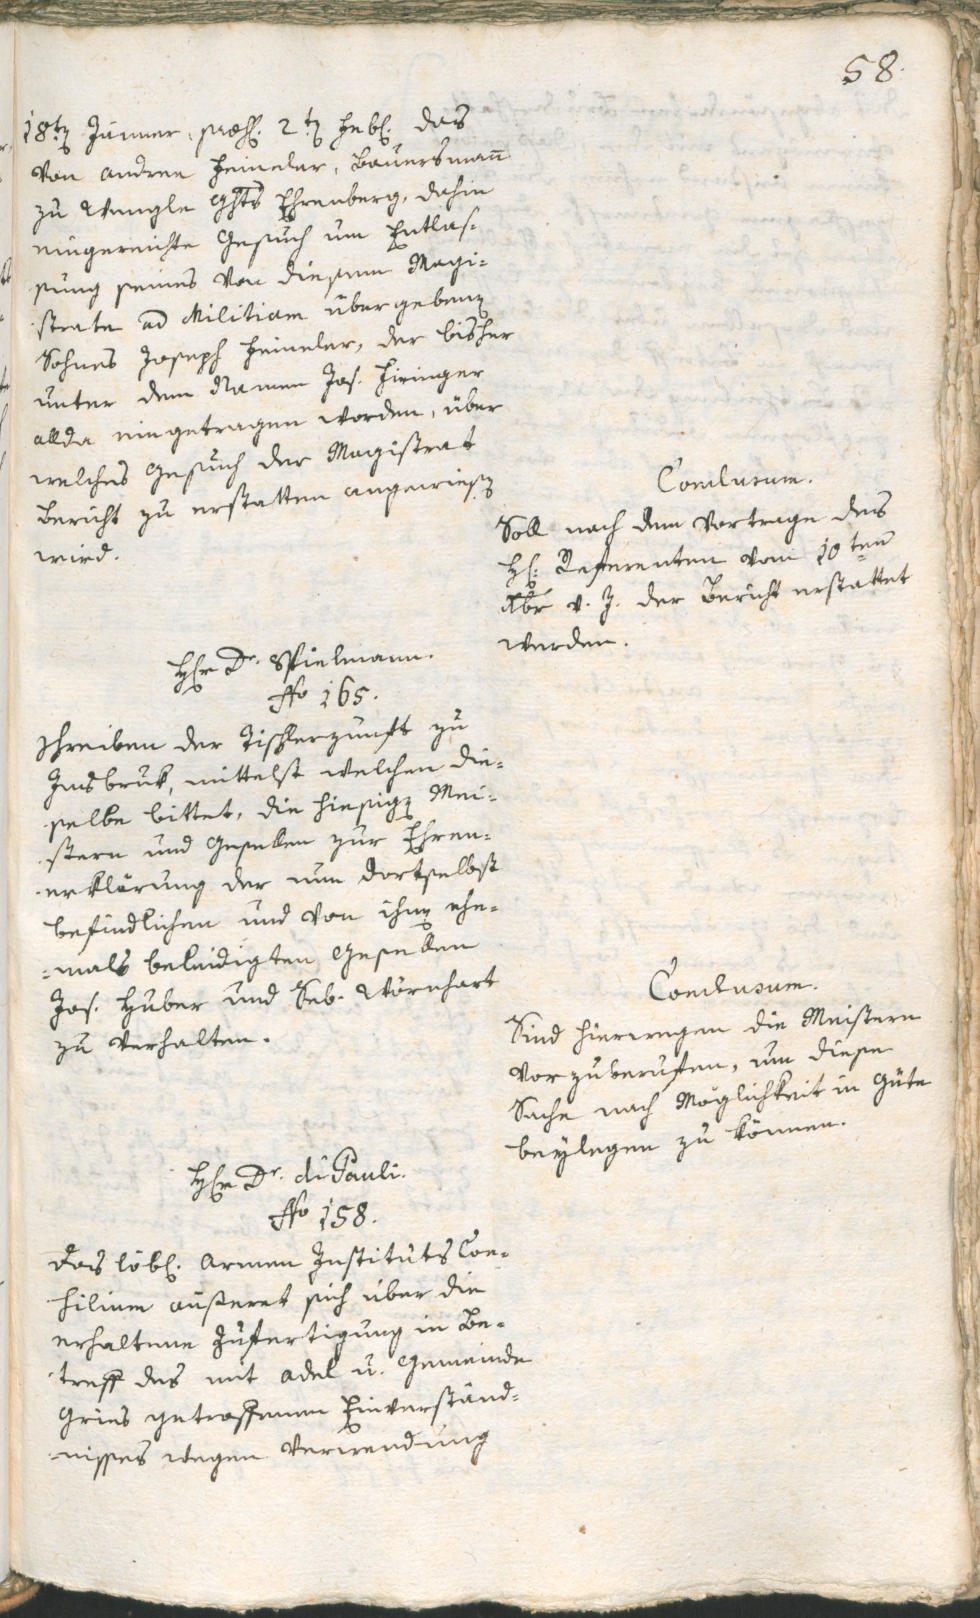 58.
18ten Jänner, præs. 2ten Febr. das
von Andree Heineler, Bauersmañ
zu Wengle Ghts Ehrenberg, dahin
eingereichte Gesuch um Entlas-
sung seines von diesem Magi-
strate ad Militiam übergebenen
Sohnes Joseph Heineler, der bisher
unter dem Namen Jos. Hieinger
allda eingetragen worden, über
welches Gesuch der Magistrat
Bericht zu erstatten angewiesen
wird.
Conclusum.
Soll nach dem Vortrage des
H: Referenten vom 10ten
Xbr v. J. der Bericht erstattet
werden.
Hr Dr. Spielmann.
No 165.
Schreiben der Tischlerzunft zu
Insbruk, mittelst welchen die-
selbe bittet, die hiesigen Mei-
stern und Gesellen zur Ehren-
erklärung der nun dortselbst
befindlichen und von ihnen ehe-
mals beleidigten Gesellen
Jos. Huber und Seb. Wörnhart
zu verhalten.
Conclusum.
Sind hierwegen die Meistern
vorzuberuffen, um diese
Sache nach Möglichkeit in Güte
beylegen zu können.
Hr Dr. di Pauli.
No 158.
Das löbl. Armen Instituts Con-
silium äußeret sich über die
erhaltene Zufertigung in Be-
treff des mit Adel u. Gemeinde
Gries getroffenen Einverständ-
nisses wegen Verwendung